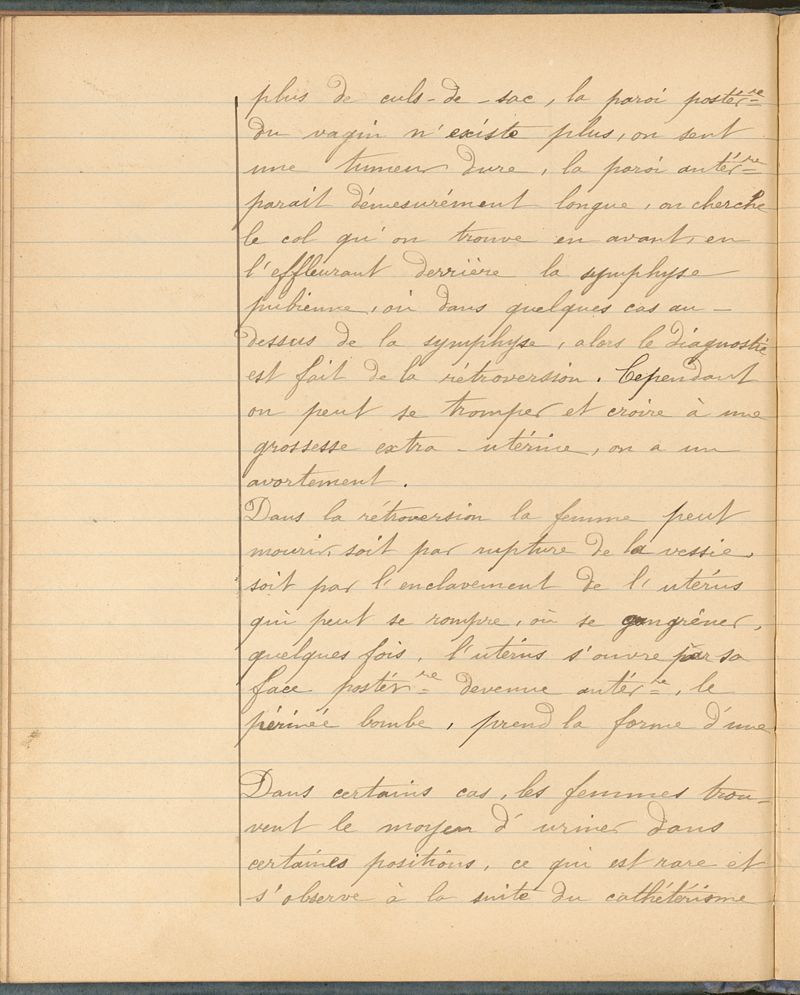 plus de culs-de-sac, la paroi postér^re
du vagin n'existe plus, on sent
une tumeur dure, la paroi antér^re
parait démesurément longue, on cherche
le col qu'on trouve en avant, en
l'effleurant derrière la symphyse
pubienne, où dans quelques cas au-
dessus de la symphyse, alors le diagnostic
est fait de la rétroversion. Cependant
on peut se tromper et croire à une
grossesse extra-utérine, on a un
avortement.
Dans la rétroversion la femme peut
mourir, soit par rupture de la vessie,
soit par l'enclavement de l'utérus
qui peut se rompre, où se gangréner,
quelques fois, l'utérus s'ouvre par sa
face postér^re devenue antér^re, le
périneé bombe, prend la forme d'une
Dans certains cas, les femmes trou-
vent le moyen d'uriner dans
certaines positions, ce qui est rare et
s'observe à la suite du cathétérisme